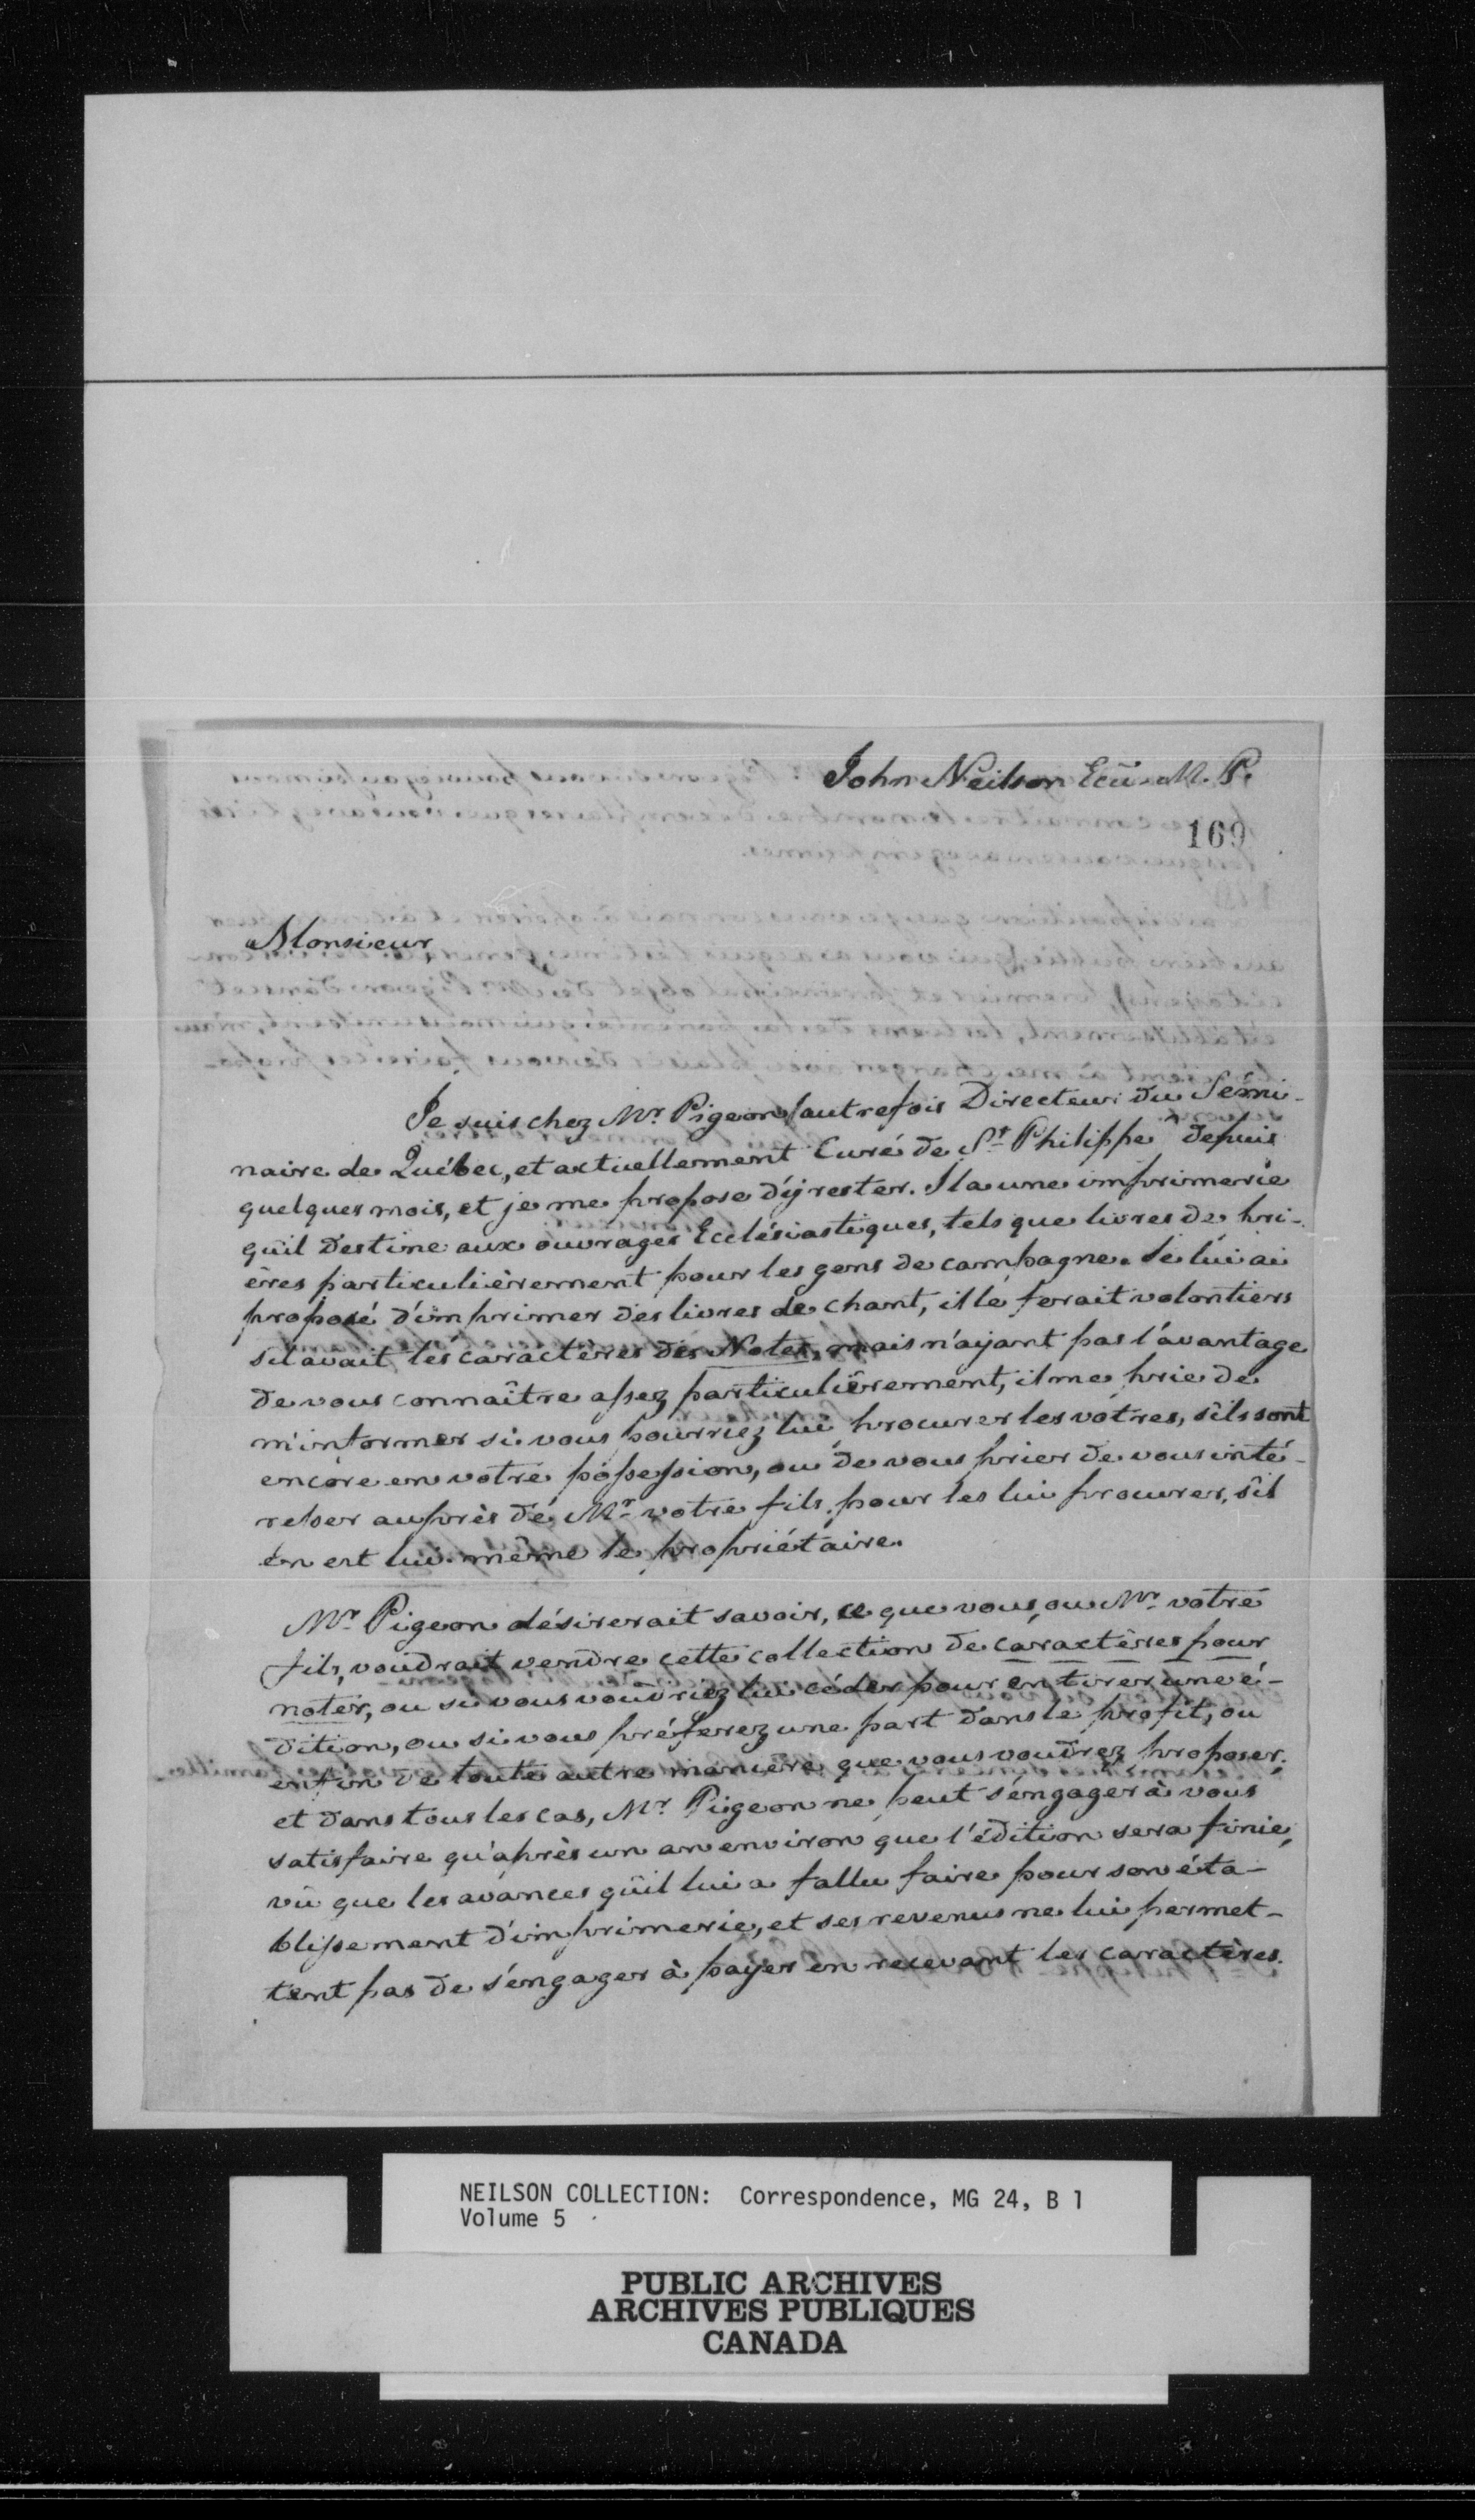 John Neilson Ecü. M. P.
169
Monsieur
Je suis chez Mr. Pigeon (autrefois Directeur du Sémi-
naire de Québec, et actuellement Curé de St. Philippe depuis
quelques mois, et je me propose d'y rester. Il a une imprimerie
qu'il destine aux ouvrages Ecclésiastiques, tels que livres de pri-
ères particulièrement pour les gens de campagne. Je lui ai
proposé d'imprimer des livres de chant, il le ferait volontiers
s'il avait les caractères des Notes, mais n'ayant pas l'avantage
de vous connaître assez particulièrement, il me prie de
m'informer si vous pourriez lui procurer les votres, s'ils sont
encore en votre possession, ou de vous prier de vous inté-
resser auprès de Mr. votre fils pour les lui procurer, s'il
en est lui-même le propriétaire.
Mr. Pigeon désirerait savoir, ce que vous, ou Mr. votre
fils, voudrait vendre cette collection de caractères pour
noter, ou si vous voudriez lui céder pour en tirer une é-
dition, ou si vous préferez une part dans le profit, ou
enfin de toute autre manière que vous voudrez proposer;
et dans tous les cas, Mr. Pigeon ne peut s'engager à vous
satisfaire qu'après un an environ que l'édition sera finie,
vû que les avances qu'il lui a fallu faire pour son éta-
blissement d'imprimerie, et ses revenus ne lui permet-
tent pas de s'engager à payer en recevant les caractères.
NEILSON COLLECTION: Correspondence, MG 24, B 1
Volume 5
PUBLIC ARCHIVES
ARCHIVES PUBLIQUES
CANADA